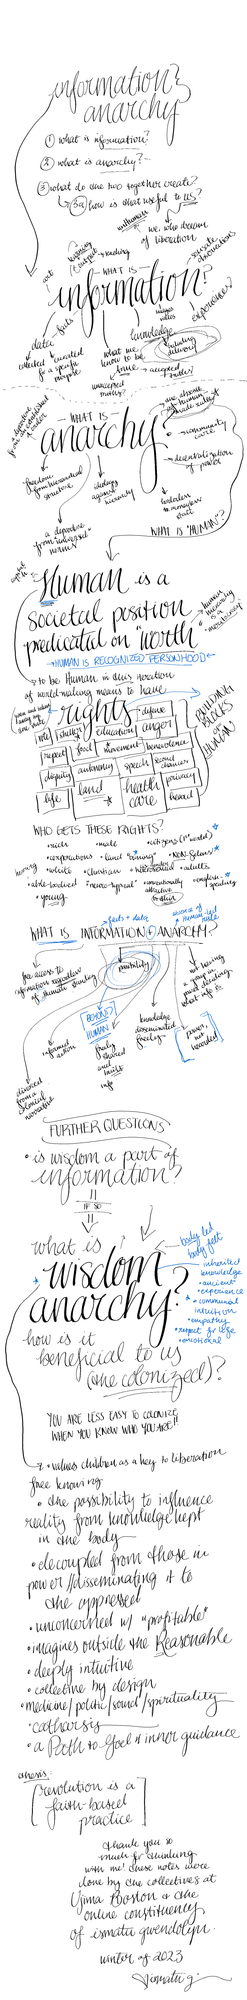 information &
anarchy
① what is information?
② what is anarchy?
③ what do the two together create?
③a how is that useful to us?
we, who dream
of liberation
- WHAT IS -
information?
art
facts
data
collected
curated
for a specific
purpose
what we
know to be
true
knowledge
accepted
truths
experiences
- WHAT IS -
anarchy
freedom
from hierarchical
structure
ideology
against
hierarchy
community
care
decentralization
of power
a departure
from "universal"
names
WHAT IS "HUMAN"?
Human is a
societal position
predicated on "worth"
→ HUMAN IS RECOGNIZED PERSONHOOD ←
to be Human in this iteration
of world-making means to have
rights
BUILDING
BLOCKS
OF
HUMAN
vote
shelter
education
defense
anger
respect
food
movement
benevolence
dignity
autonomy
speech
second
chances
life
land
health
care
privacy
heard
WHO GETS THESE RIGHTS?
rich
male
citizens (1st world)
corporations
land "owning"
NON-felons
hearing
white
Christian
heterosexual
adults
able-bodied
"neuro-typical"
conventionally
attractive
english-
speaking
young
facts + data
absence of
Human-led
state
WHAT IS INFORMATION + ANARCHY?
free access to
information regardless
of Human standing
possibility
not having
a group in
power deciding
what info is
informed
action
BEYOND
HUMAN
freely
shared
and
built
info
knowledge
disseminated
freely
power,
not
hoarded
divorced
from a
colonial
narrative
FURTHER QUESTIONS
is wisdom a part of
information?
IF SO
what is
wisdom
anarchy?
body led
body felt
inherited
knowledge
ancient
experience
communal
intuition
empathy
respect for life
emotional
how is it
beneficial to us
(the colonized)?
YOU ARE LESS EASY TO COLONIZE
WHEN YOU KNOW WHO YOU ARE!!
values children as a key to liberation
free knowing
• the possibility to influence
reality from knowledge kept
in the body
• decoupled from those in
power // disseminating it to
the oppressed
• unconcerned w/ "profitable"
• imagines outside the Reasonable
• deeply intuitive
• collective by design
• medicine/politic/sound/spirituality
• catharsis
• a Path to God & inner guidance
thesis:
[revolution is a
faith-based
practice]
thank you so
much for thinking
with me! these notes were
done by the collectives at
Ujima Boston & the
online constituency
of ismatu gwendolyn.
winter of 2023
ismatu g.